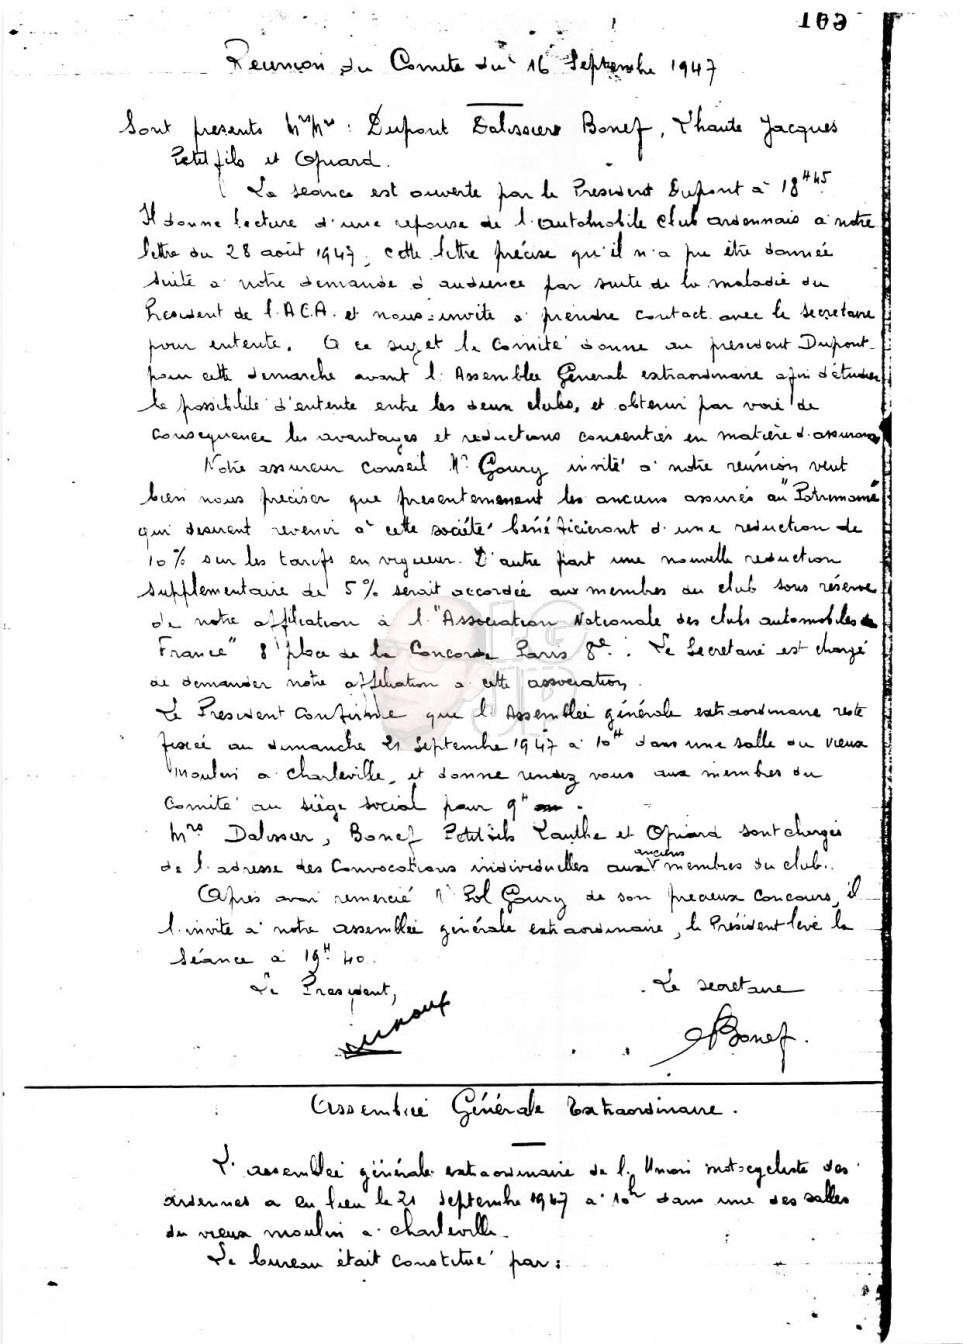 109
Reunion du Comite du 16 Septembre 1947
Sont presents Mrs : Dupont Dalissier Bonef, Thaute Jacques
Petitfils et Opiard.
La seance est ouverte par le President Dupont à 18H45
Il donne lecture d'une reponse de l'automobile club ardennais a notre
lettre du 28 août 1947, cette lettre précise qu'il n'a pu être donnée
suite a notre demande d'audience par suite de la maladie du
President de l'A.C.A. et nous invite a prendre contact avec le secretaire
pour entente. A ce sujet le Comité donne au president Dupont
pour cette demarche avant l'Assemblée Generale extraordinaire afin d'étudier
la possibilité d'entente entre les deux clubs, et obtenir par voie de
consequence les avantages et reductions consenties en matière d'assurance
Notre assureur Conseil Mr Goury invité a notre reunion veut
bien nous preciser que presentement les anciens assurés au "Patrimoine"
qui desirent revenir à cette société bénéficieront d'une reduction de
10% sur les tarifs en vigueur. D'autre part une nouvelle reduction
supplementaire de 5% serait accordée aux membres du club sous réserve
de notre affiliation à l'"Association Nationale des clubs automobiles de
France" 8 place de la Concorde Paris 8e. Le Secretaire est chargé
de demander notre affiliation a cette association.
Le President Confirme que l'Assemblée générale extraordinaire reste
fixée au dimanche 21 Septembre 1947 a 10H dans une salle du vieux
Moulin a Charleville, et donne rendez vous aux membres du
Comité au siège social pour 9H
Mrs Dalissier, Bonef Petitfils Xauthe et Opiard sont charges
de l'adresse des Convocations individuelles aux anciens membres du club.
Après avoir remercié Mr Pol Goury de son precieux concours, il
l'invite a notre assemblée générale extraordinaire, le Président lève la
Séance à 19H 40.
Le President, Le secretaire
Bonef.
Assemblée Générale Extraordinaire.
L'assemblée générale extraordinaire de l'Union motocycliste des
ardennes a eu lieu le 21 septembre 1947 a 10h dans une des salles
du vieux moulin a charleville.
Le bureau était constitué par :
LG
JP